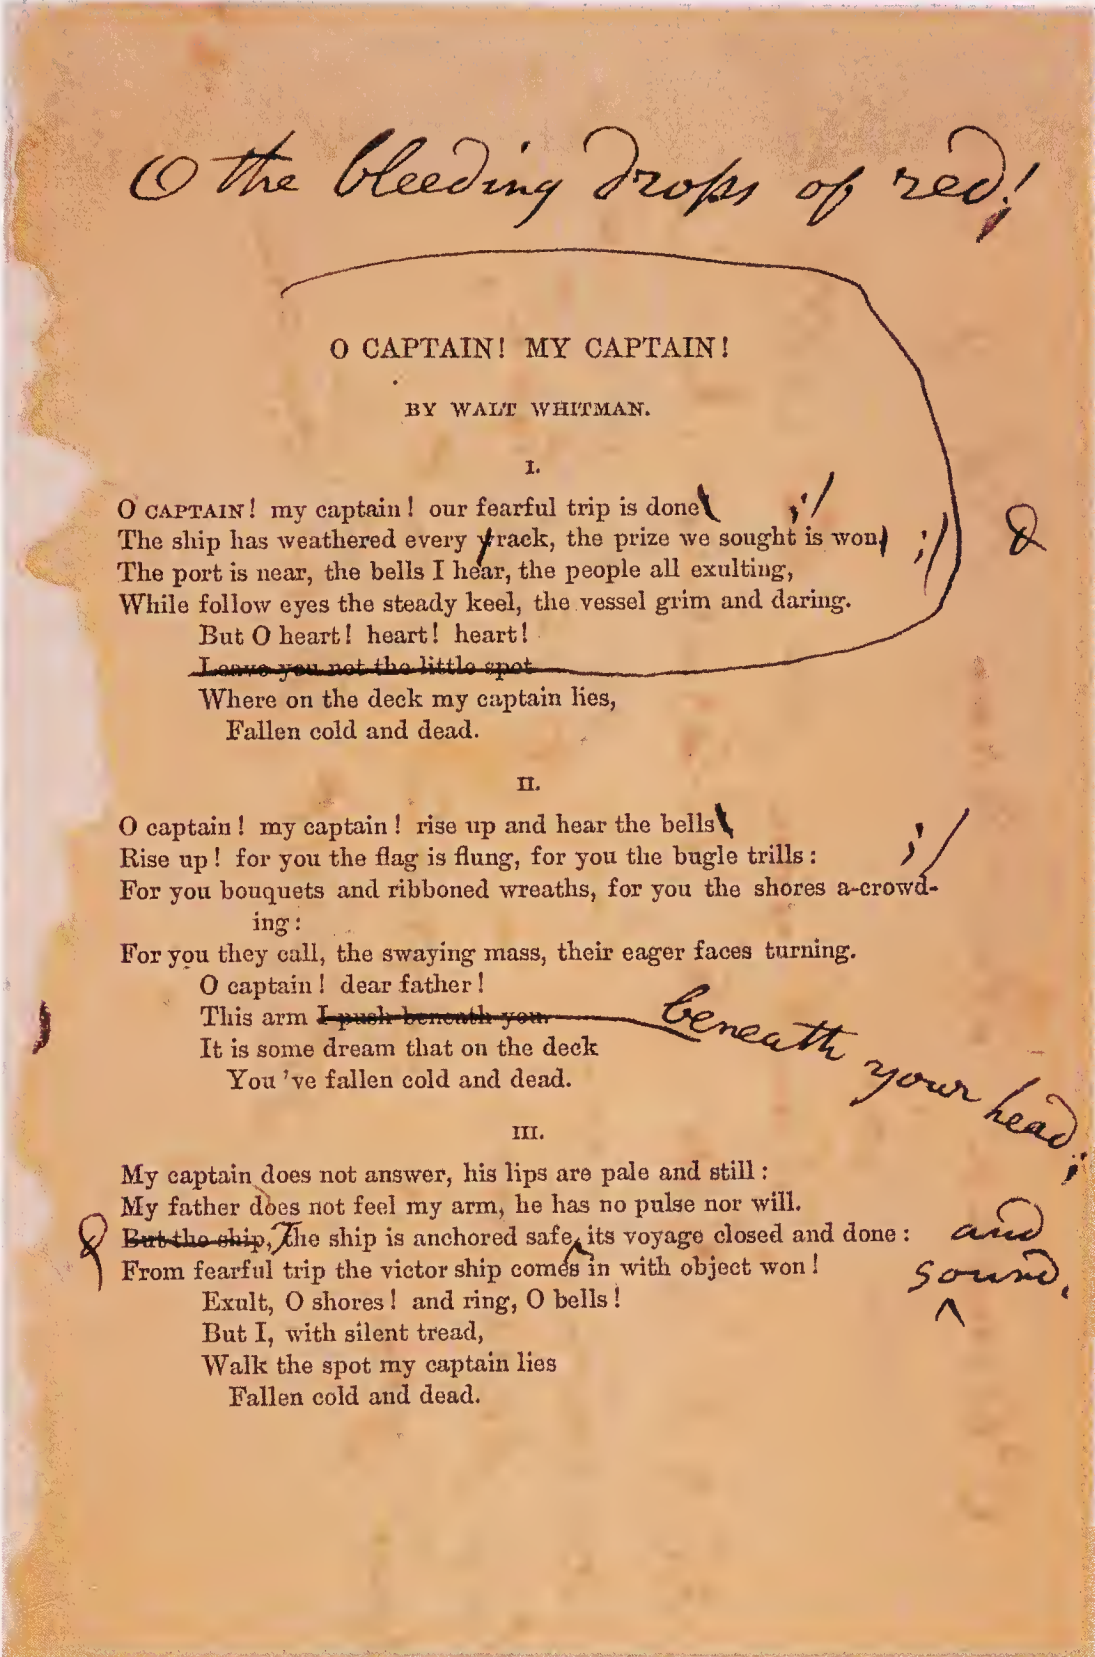 O the bleeding drops of red!
O CAPTAIN! MY CAPTAIN!
BY WALT WHITMAN.
I.
O CAPTAIN! my captain! our fearful trip is done ;/
The ship has weathered every wrack, the prize we sought is won, ;/
The port is near, the bells I hear, the people all exulting,
While follow eyes the steady keel, the vessel grim and daring.
But O heart! heart! heart!
Leave you not the little spot
Where on the deck my captain lies,
Fallen cold and dead.
II.
O captain! my captain! rise up and hear the bells ;/
Rise up! for you the flag is flung, for you the bugle trills:
For you bouquets and ribboned wreaths, for you the shores a-crowd-
ing:
For you they call, the swaying mass, their eager faces turning.
O captain! dear father!
This arm I push beneath you. beneath your head;
It is some dream that on the deck
You 've fallen cold and dead.
III.
My captain does not answer, his lips are pale and still:
My father does not feel my arm, he has no pulse nor will.
But the ship, The ship is anchored safe, its voyage closed and done: and sound,
From fearful trip the victor ship comes in with object won!
Exult, O shores! and ring, O bells!
But I, with silent tread,
Walk the spot my captain lies
Fallen cold and dead.